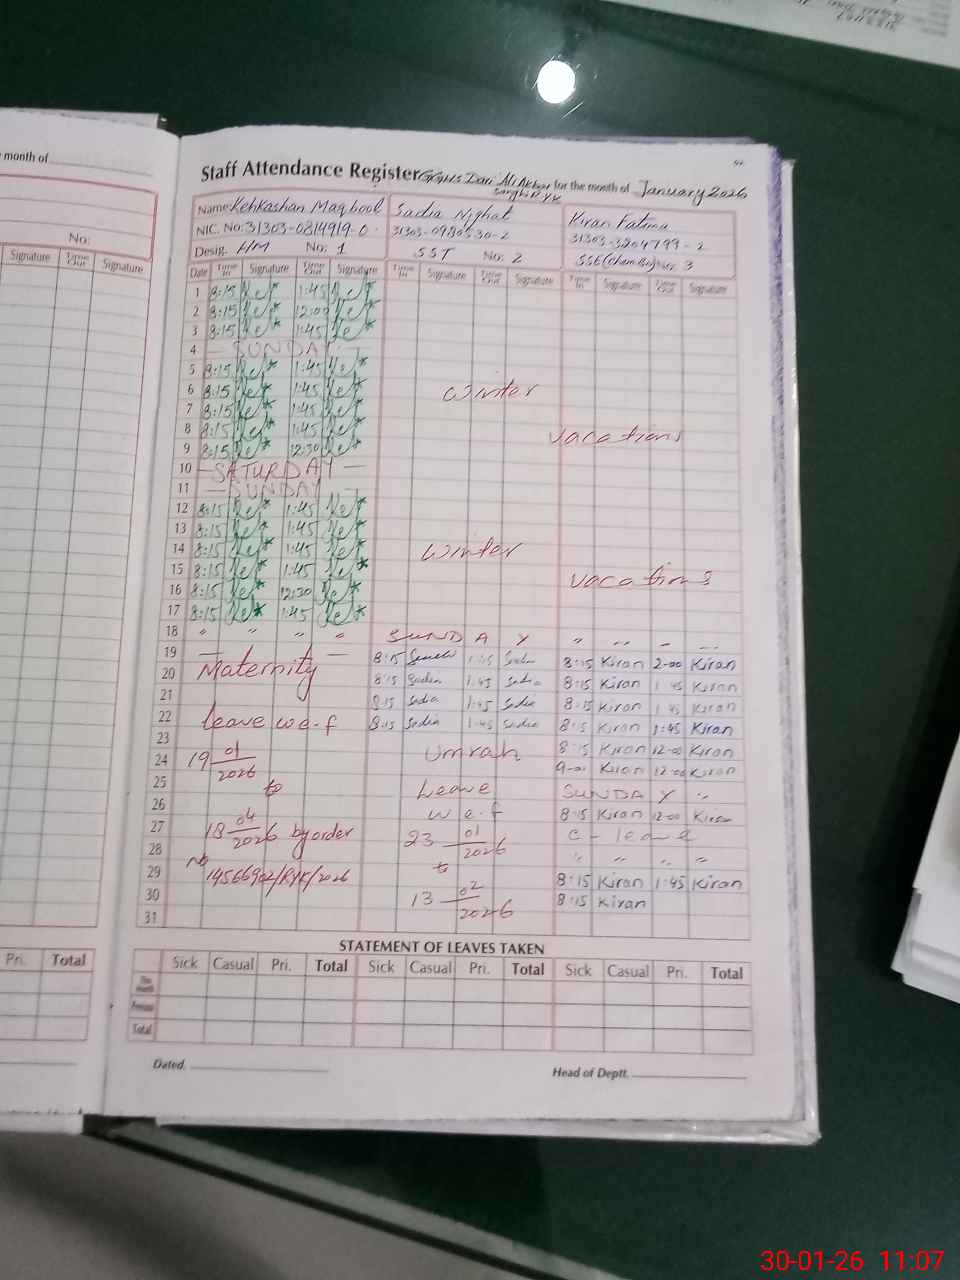 month of
Staff Attendance Register GGHS Dari Ali Akbar Sanghi RYK for the month of January 2026
Name: Kehkashan Maqbool Sadia Nighat Kiran Fatima
NIC. No: 31303-0814919-0 31303-0980530-2 31303-3204799-2
Desig. HM No: 1 SST No: 2 SSE(chem Bio) No: 3
No:
Signature Time Out Signature
Date Time In Signature Time Out Signature Time In Signature Time Out Signature Time In Signature Time Out Signature
1 8:15 1:45
2 8:15 12:00
3 8:15 1:45
4 — SUNDAY —
5 8:15 1:45
6 8:15 1:45 Winter
7 8:15 1:45
8 8:15 1:45 vacations
9 8:15 12:30
10 — SATURDAY —
11 — SUNDAY —
12 8:15 1:45
13 8:15 1:45
14 8:15 1:45 Winter
15 8:15 1:45 vacations
16 8:15 12:30
17 8:15 1:45
18 " " " " SUNDAY " " - -
19 8:15 1:45 Sadia 8:15 Kiran 2-00 Kiran
20 Maternity 8:15 Sadia 1:45 Sadia 8:15 Kiran 1:45 Kiran
21 8:15 Sadia 1:45 Sadia 8:15 Kiran 1:45 Kiran
22 leave w.e.f 8:15 Sadia 1:45 Sadia 8:15 Kiran 1:45 Kiran
23 Umrah 8:15 Kiran 12-00 Kiran
24 19 01/2026 9-01 Kiran 12-00 Kiran
25 to Leave SUNDAY "
26 w.e.f 8:15 Kiran 12-00 Kiran
27 18 04/2026 by order 23 01/2026 C- leave
28 No to " " " "
29 14566902/RYK/2026 8:15 Kiran 1:45 Kiran
30 13 02/2026 8:15 Kiran
31
STATEMENT OF LEAVES TAKEN
Pri. Total
Sick Casual Pri. Total Sick Casual Pri. Total Sick Casual Pri. Total
This month
Previous
Total
Dated. Head of Deptt.
30-01-26 11:07